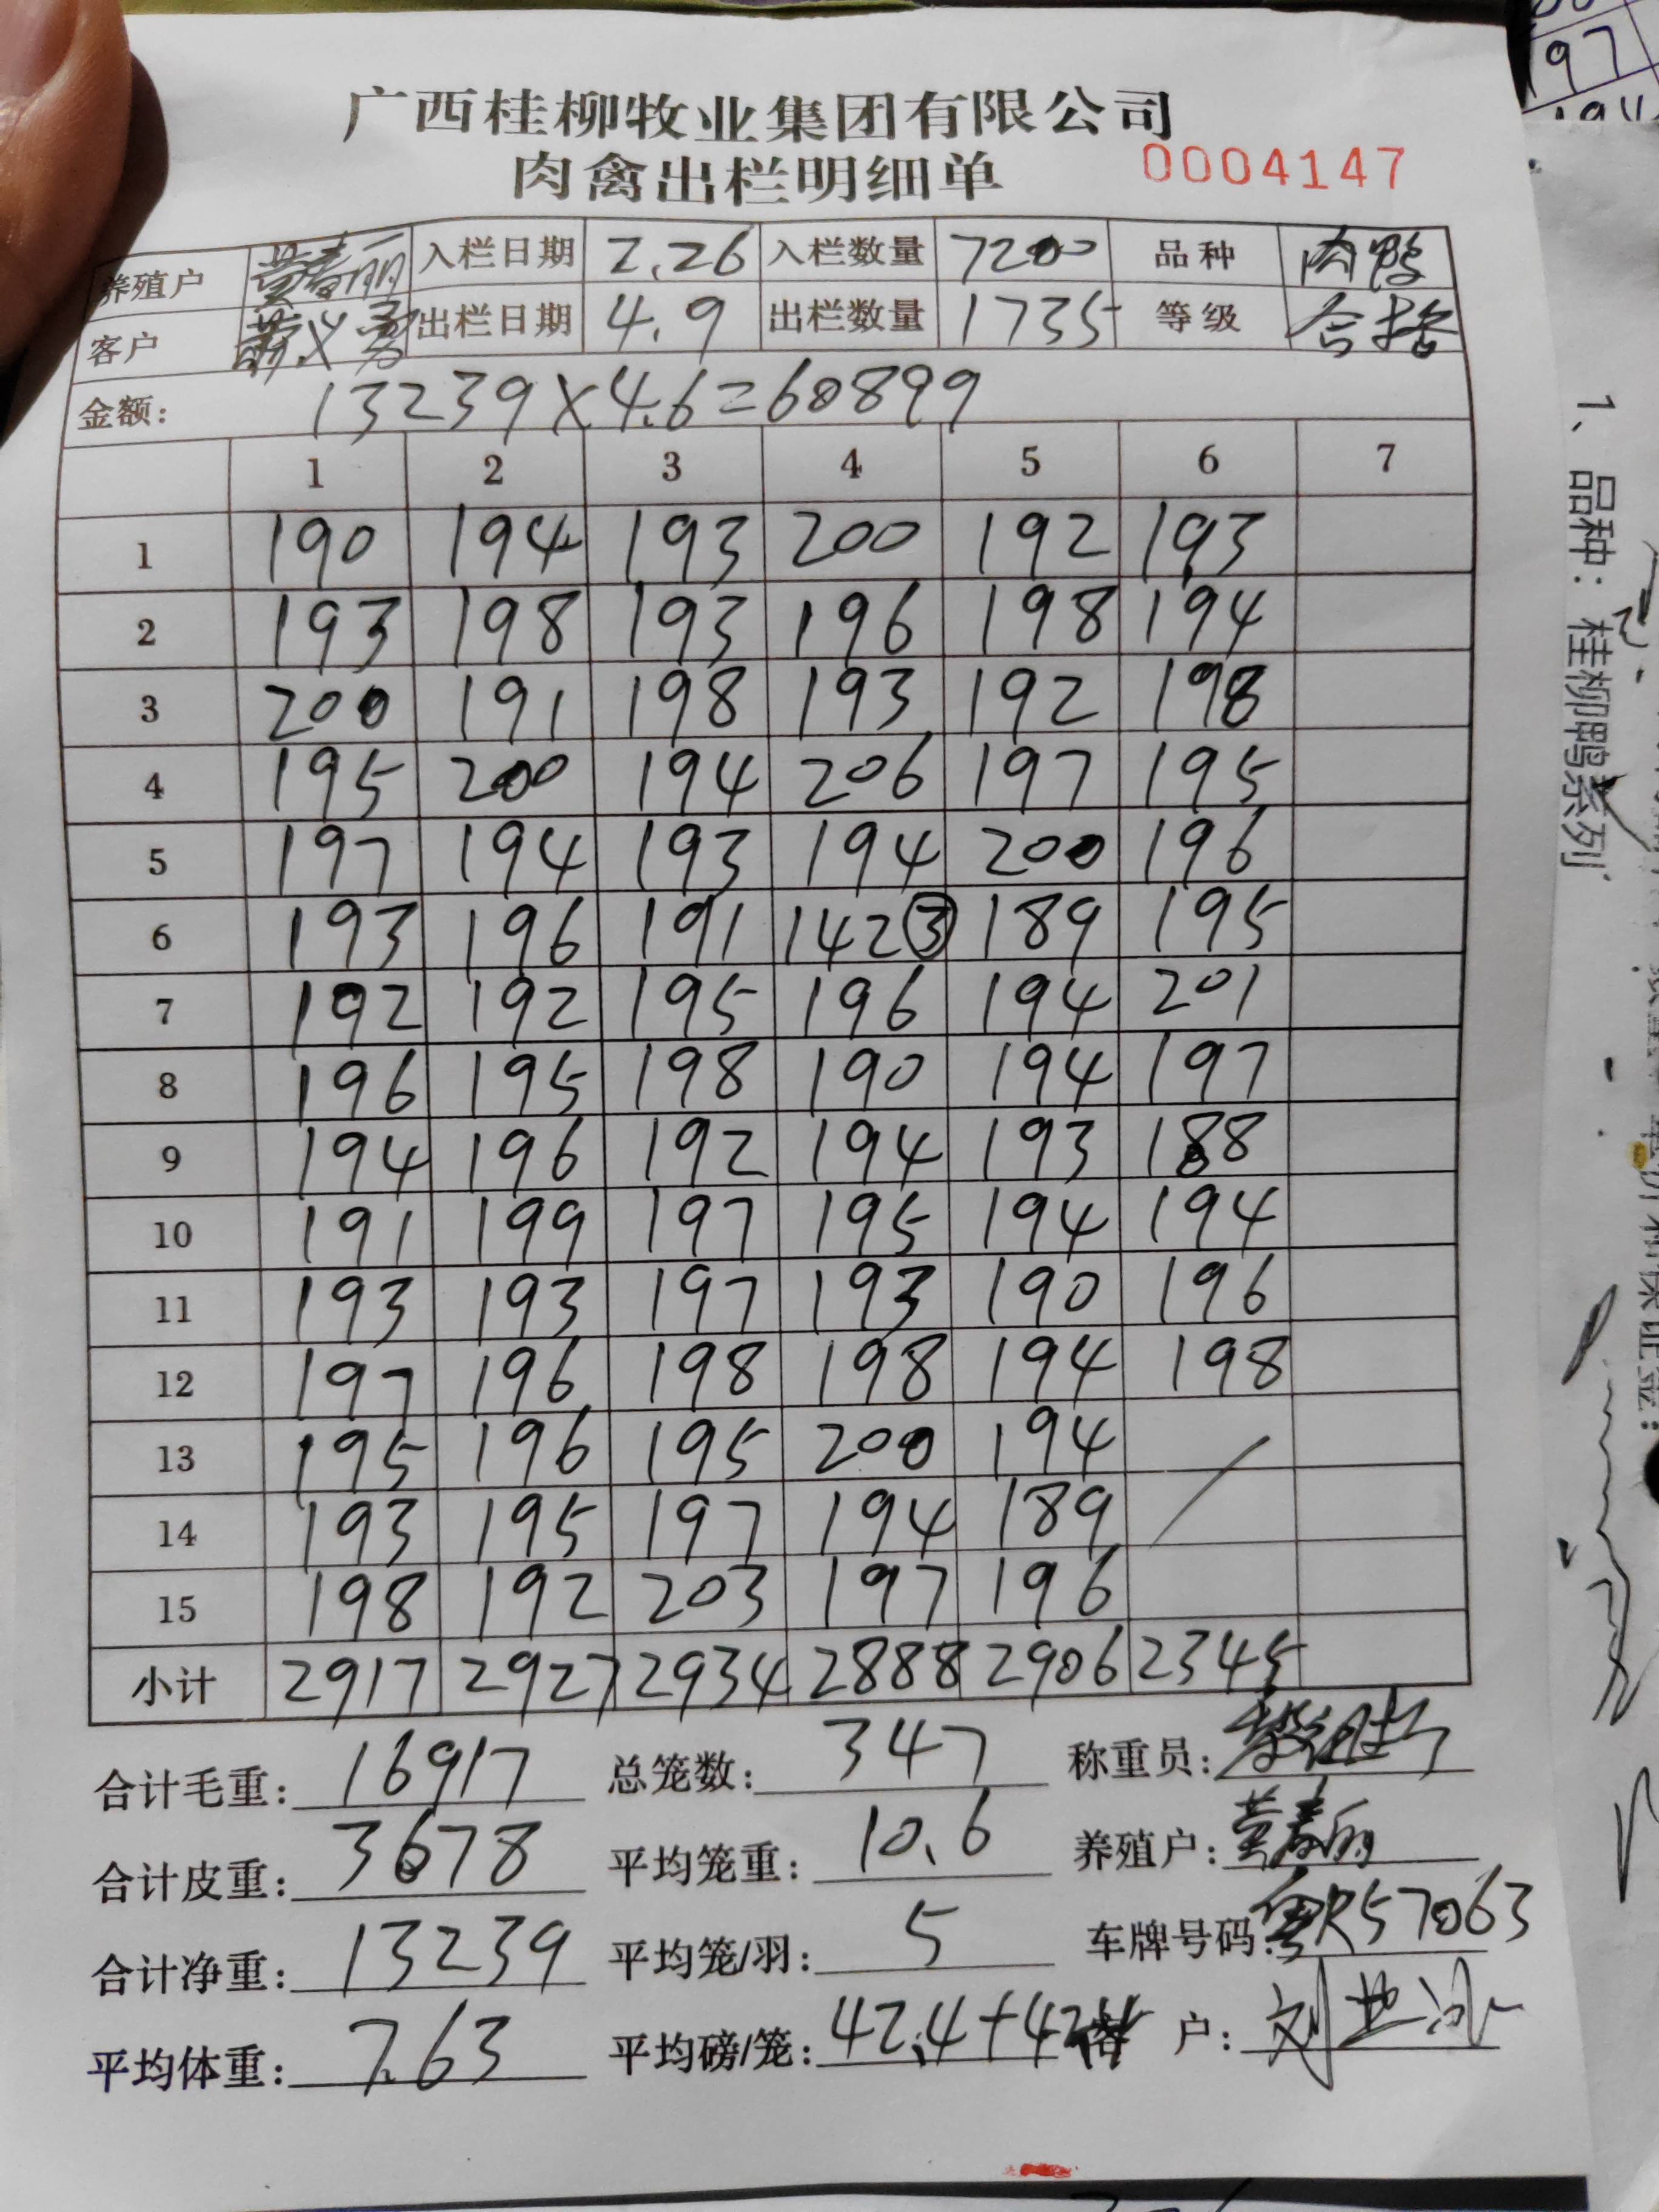 广西桂柳牧业集团有限公司
肉禽出栏明细单 0004147
养殖户 黄春丽 入栏日期 2.26 入栏数量 7200 品种 肉鸭
客户 出栏日期 4.9 出栏数量 1735 等级 合格
金额: 13239×4.6=60899
1 2 3 4 5 6 7
1 190 194 193 200 192 193
2 193 198 193 196 198 194
3 200 191 198 193 192 198
4 195 200 194 206 197 195
5 197 194 193 194 200 196
6 193 196 191 142③ 189 195
7 192 192 195 196 194 201
8 196 195 198 190 194 197
9 194 196 192 194 193 188
10 191 199 197 195 194 194
11 193 193 197 193 190 196
12 197 196 198 198 194 198
13 195 196 195 200 194
14 193 195 197 194 189
15 198 192 203 197 196
小计 2917 2927 2934 2888 2906 2345
合计毛重: 16917 总笼数: 347 称重员:
合计皮重: 3678 平均笼重: 10.6 养殖户: 黄春丽
合计净重: 13239 平均笼/羽: 5 车牌号码: 粤R57063
平均体重: 7.63 平均磅/笼: 42.4+424 客户:
1、品种: 桂柳鸭系列
97